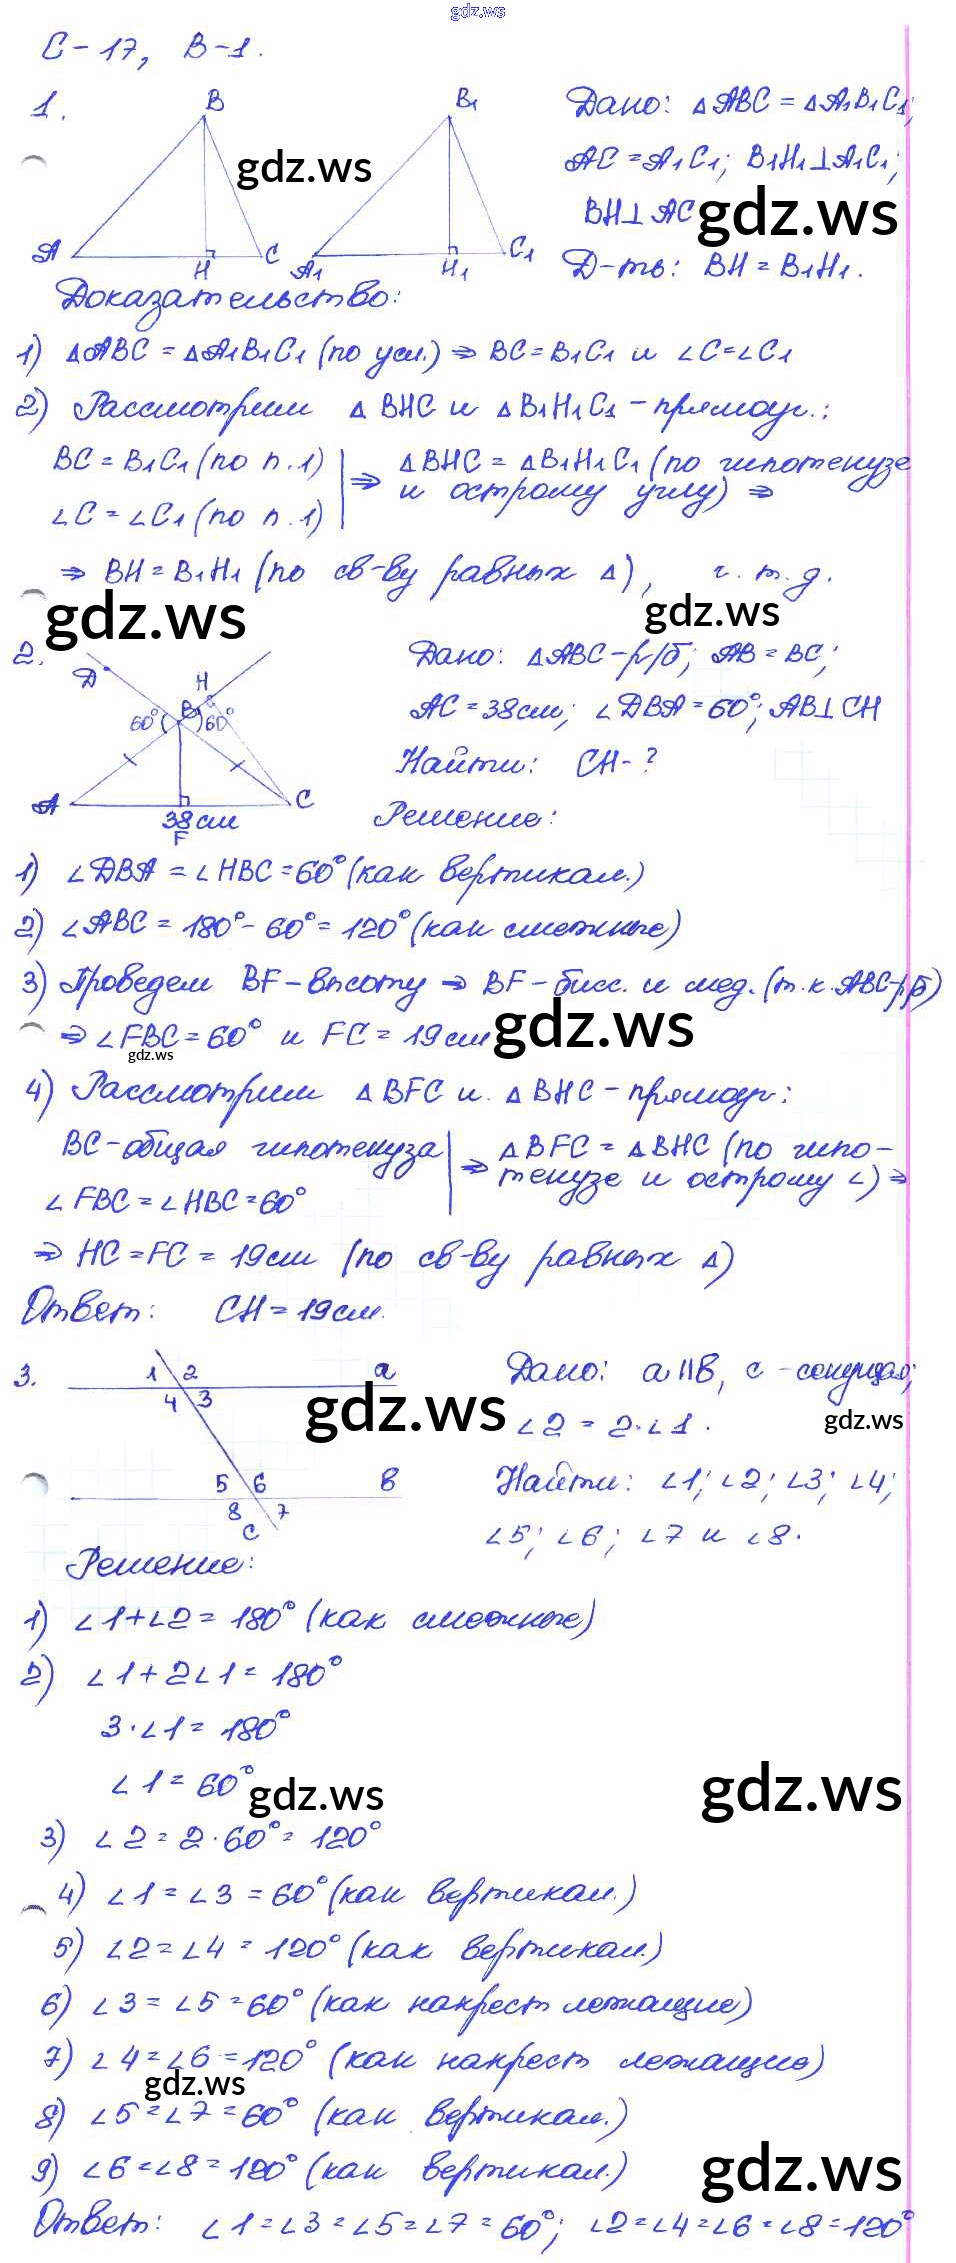 gdz.ws
С-17, В-1.
1.
B
B1
A
H
C
A1
H1
C1
gdz.ws
Дано: △ABC = △A1B1C1;
AC = A1C1; B1H1⊥A1C1;
BH⊥AC
gdz.ws
Д-ть: BH = B1H1.
Доказательство:
1) △ABC = △A1B1C1 (по усл.) ⇒ BC = B1C1 и ∠C = ∠C1
2) Рассмотрим △BHC и △B1H1C1 - прямоуг.:
BC = B1C1 (по п.1)
∠C = ∠C1 (по п.1)
⇒ △BHC = △B1H1C1 (по гипотенузе
и острому углу) ⇒
⇒ BH = B1H1 (по св-ву равных △), ч.т.д.
gdz.ws
gdz.ws
2.
D
H
B
60°
60°
A
C
38см
F
Дано: △ABC - р/б; AB = BC;
AC = 38см; ∠DBA = 60°; AB⊥CH
Найти: CH - ?
Решение:
1) ∠DBA = ∠HBC = 60° (как вертикал.)
2) ∠ABC = 180° - 60° = 120° (как смежные)
3) Проведем BF - высоту ⇒ BF - бисс. и мед. (т.к. ABC - р/б)
⇒ ∠FBC = 60° и FC = 19см
gdz.ws
gdz.ws
4) Рассмотрим △BFC и △BHC - прямоуг:
BC - общая гипотенуза
∠FBC = ∠HBC = 60°
⇒ △BFC = △BHC (по гипо-
тенузе и острому ∠) ⇒
⇒ HC = FC = 19см (по св-ву равных △)
Ответ: CH = 19см.
3.
1 2
a
4 3
5 6
в
8 7
c
gdz.ws
Дано: a||в, c - секущая;
∠2 = 2·∠1.
gdz.ws
Найти: ∠1; ∠2; ∠3; ∠4;
∠5; ∠6; ∠7 и ∠8.
Решение:
1) ∠1+∠2 = 180° (как смежные)
2) ∠1 + 2∠1 = 180°
3·∠1 = 180°
∠1 = 60°
gdz.ws
gdz.ws
3) ∠2 = 2·60° = 120°
4) ∠1 = ∠3 = 60° (как вертикал.)
5) ∠2 = ∠4 = 120° (как вертикал.)
6) ∠3 = ∠5 = 60° (как накрест лежащие)
7) ∠4 = ∠6 = 120° (как накрест лежащие)
gdz.ws
8) ∠5 = ∠7 = 60° (как вертикал.)
9) ∠6 = ∠8 = 120° (как вертикал.)
gdz.ws
Ответ: ∠1 = ∠3 = ∠5 = ∠7 = 60°; ∠2 = ∠4 = ∠6 = ∠8 = 120°